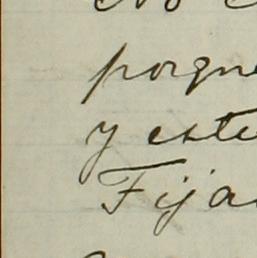 porqu
y este
Fija